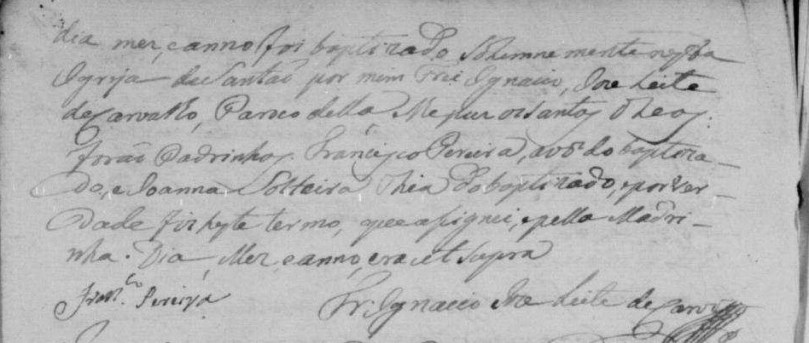 dia mez, e anno foi baptizado Solemnemente nesta
Igreja de Santão por mim Frei Ignacio Joze Leite
de Carvalho, Paroco della Me pus os Santos Oleos.
forão Padrinhos, Francisco Pereira, avô do baptiza-
do, e Joanna Solteira Thia do baptizado, e por ver-
dade fiz este termo, que asignei, e pella Madri-
nha. Dia, Mez, e anno, era ut Supra
Fran.co Pereira Fr. Ignacio Joze Leite de Carv.o